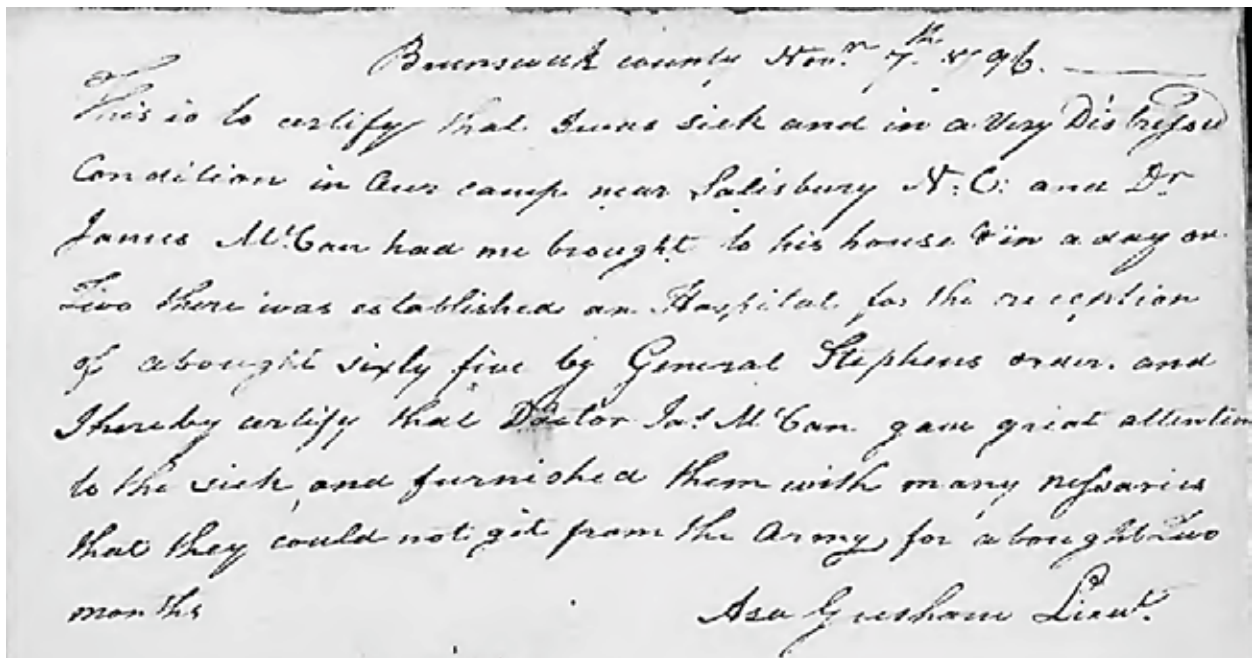 Brunswick county Nov.r 7.th 1796.
This is to certify that I was sick and in a Very Distressed
Condition in Our camp near Salisbury N:C: and Dr
James McCan had me brought to his house & in a day or
Two there was established an Hospital for the reception
of abought sixty five by General Stephens order. and
I hereby certify that Doctor Jas. McCan gave great attention
to the sick and furnished them with many nessaries
that they could not git from the Army for abought Two
months
Asa Gresham Lieut.